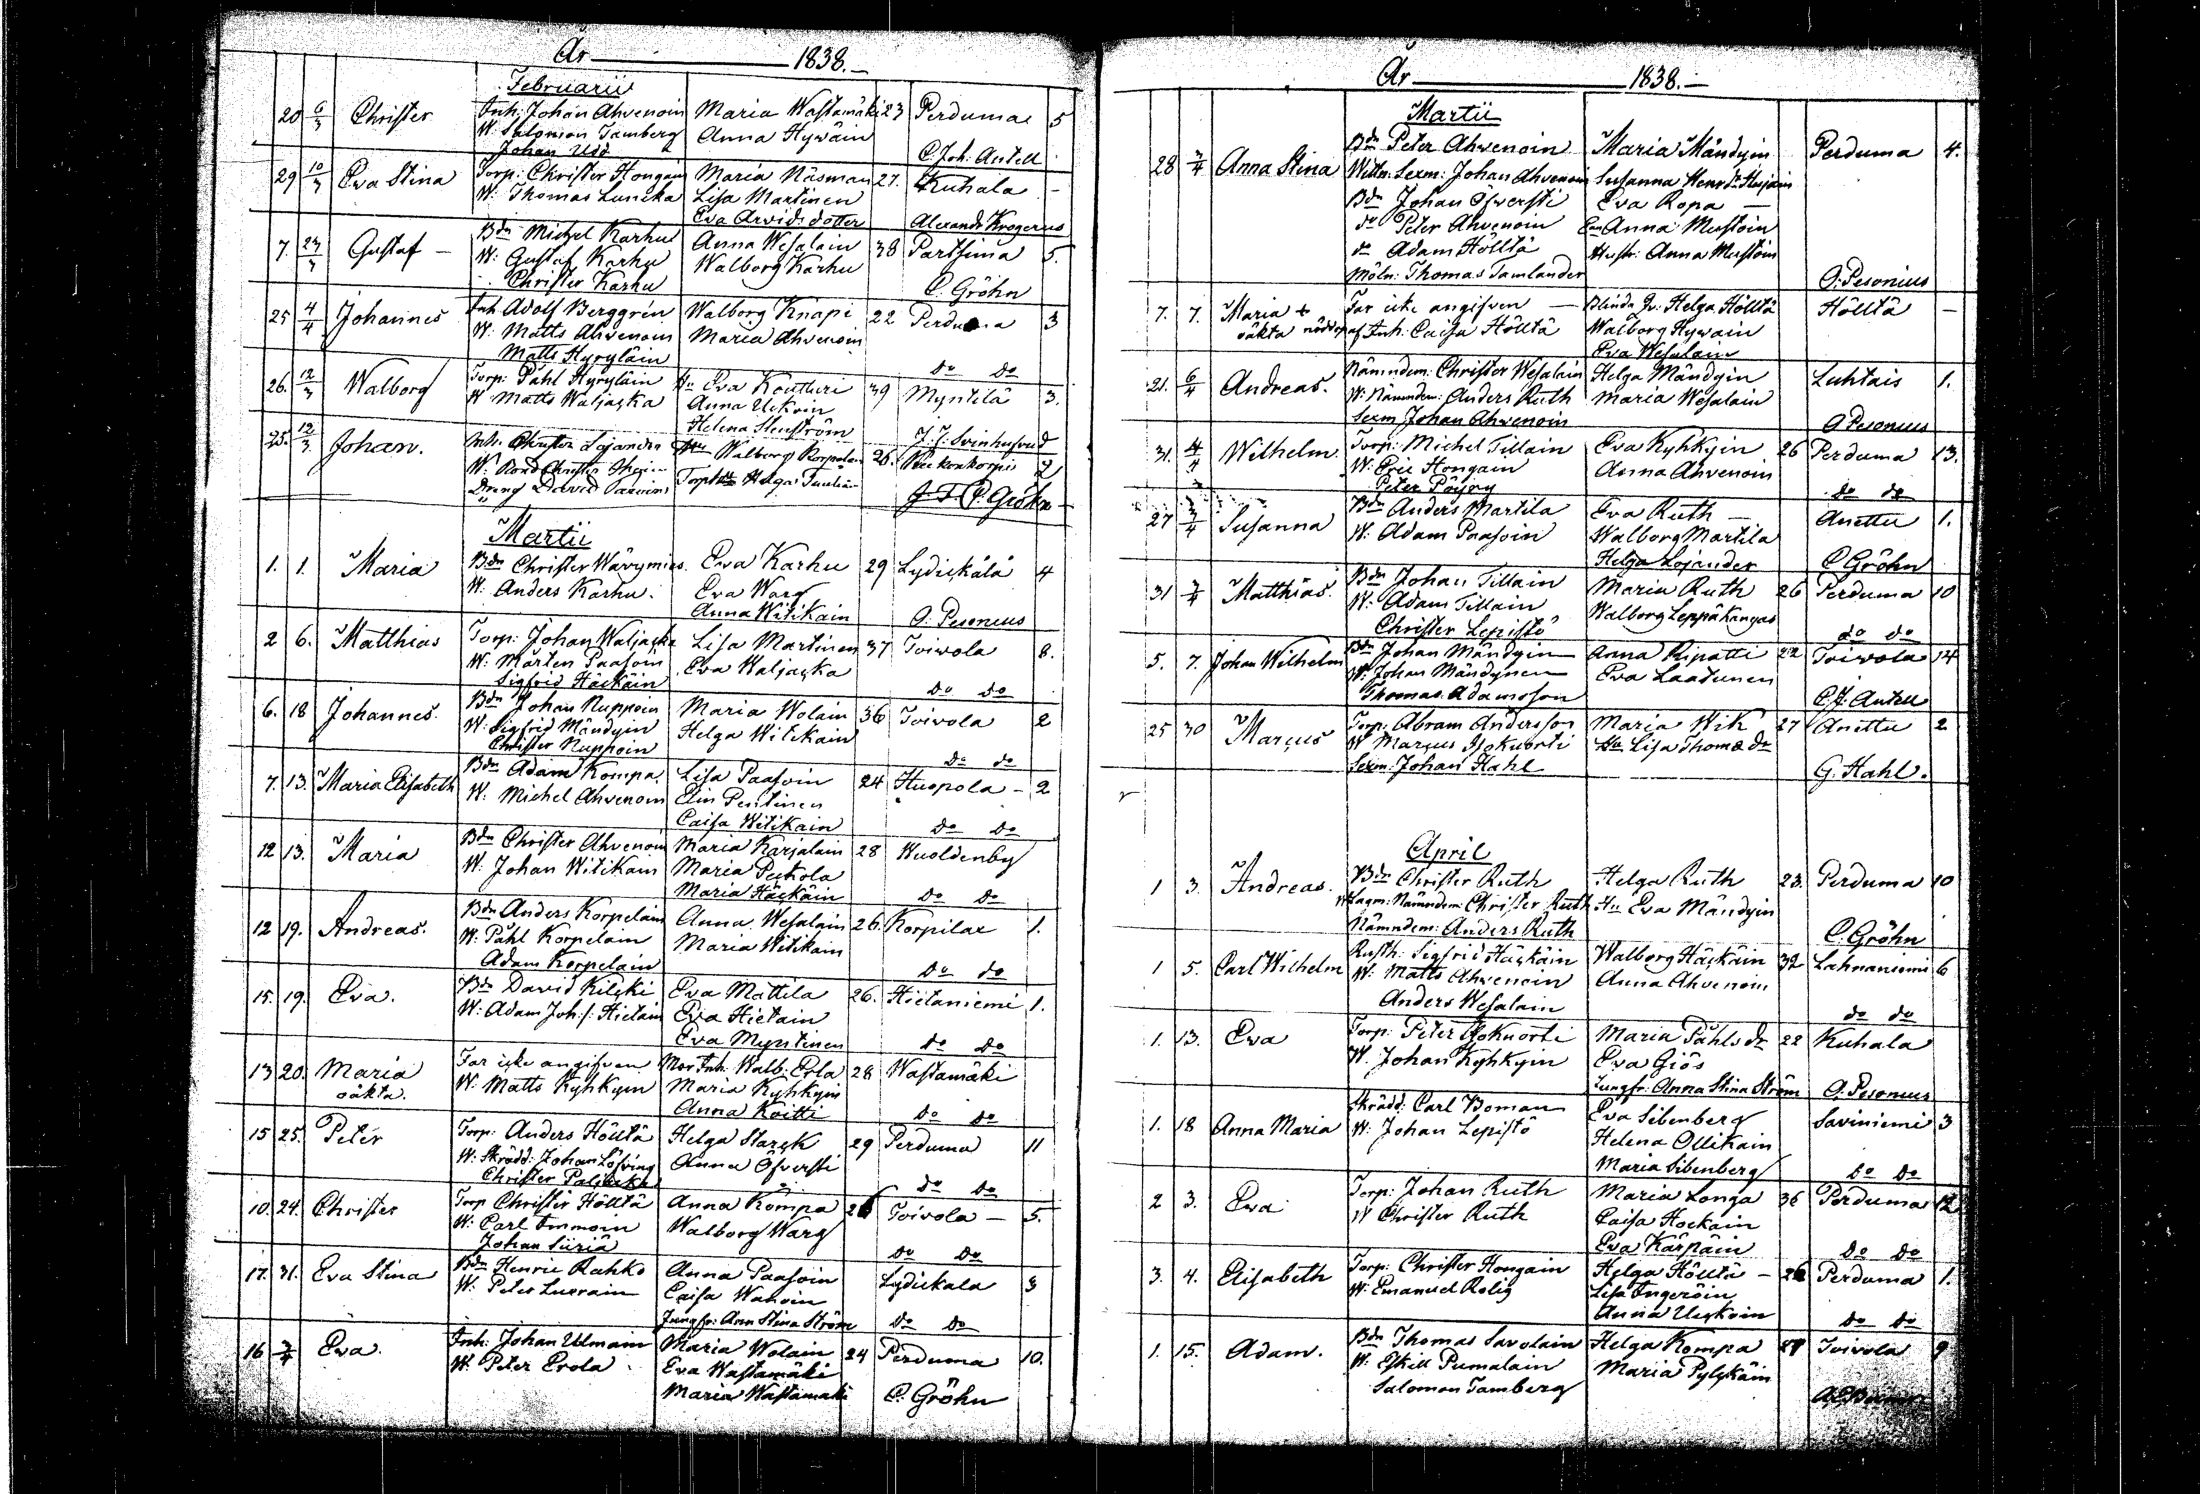 År 1838.
Februarii
20 6/3 Christer Inh: Johan Ahvenoin Maria Wastamäki 23 Perduma 5
W: Salomon Tamberg Anna Hywäin
Johan Udd C. Joh: Antell
29 10/3 Eva Stina Torp: Christer Hongain Maria Näsman 27. Kuhala -
W: Thomas Lunika Lisa Martinen
Eva Arvids dotter Alexand: Krogerus
7. 23/3 Gustaf - Bdn Michel Karhu Anna Wesalain 38 Partsima 5.
W: Gustaf Karhu Walborg Karhu
Christer Karhu C. Gröhn
25 4/4 Johannes Inh Adolf Berggrén Walborg Knapi 22 Perduma 3
W: Matts Ahvenoin Maria Ahvenoin
Matts Hyryläin do do
26. 12/3 Walborg Torp: Påhl Hyryläin Hu Eva Koutluri 39 Myntilä 3.
W Matts Waljacka Anna Uckoin
Helena Stenström J. J. Svinhufvud
25. 12/3 Johan. Inh. Christer Lojander Walborg Korpelain 26. 2
W. Christer Helga
Dreng David C. Gröhn
Martii
1. 1. Maria Bdn Christer Wärymies. Eva Karhu 29 Lydickälä 4
W. Anders Karhu. Eva Warg
Anna Witikain O. Pesonius
2 6. Matthias Torp: Johan Waljacka Lisa Martinen 37 Toivola 8.
W: Mårten Paasoin Eva Waljacka
Sigfrid Häckäin do do
6. 18 Johannes. Bdn Johan Nuppoin Maria Wolain 36 Toivola 2
W: Sigfrid Mändyin Helga Witikain
Christer Nuppoin do do
7. 13. Maria Elisabeth Bdn Adam Kompa Lisa Paasoin 24 Huopola - 2
W: Michel Ahvenoin Elin Pentinen
Caisa Witikain do do
12 13. Maria Bdn Christer Ahvenoin Maria Karjalain 28 Kuoldenby
W. Johan Witikain Maria Peckola
Maria Häckäin do do
12 19. Andreas. Bdn Anders Korpelain Anna Wesalain 26. Korpilax 1.
W: Påhl Korpelain Maria Witikain
Adam Korpelain do do
15. 19. Eva. Bdn David Kilpki Eva Mattila 26. Hietaniemi 1.
W: Adam Joh:s: Hietain Eva Hietain
Eva Myntinen do do
13 20. Maria Far icke angifven Mor Inh: Walb: Erla 28 Wastamäki
oäkta. W: Matts Kyhkyin Maria Kyhkyin
Anna Koitti do do
15 25. Peter Torp: Anders Hölltä Helga Starck 29 Perduma 11
W: Skrädd: Johan Löfving Anna Öfversti
Christer Paljacka do do
10. 24. Christer Torp Christer Hölltä Anna Kompa 26 Toivola - 5.
W: Carl Immoin Walborg Warg
Johan Siiriä do do
17. 31. Eva Stina Bdn Henric Rahko Anna Paasoin Lydickala 3
W: Peter Luxrain Caisa Wanoin
Jungfr: Ann Stina Ström do do
16 2/4 Eva. Inh: Johan Ulmain Maria Wolain 24 Perduma 10.
W. Peter Erola Eva Wastamäki
Maria Wastamäki C. Gröhn
År 1838.
Martii
28 2/4 Anna Stina Bdn Peter Ahvenoin Maria Mändyin Perduma 4.
Wittn: Sexm: Johan Ahvenoin Susanna Henr dr Husjain
Bdn Johan Öfversti Eva Ropa
do Peter Ahvenoin Anna Mustoin
do Adam Hölltä Hustr: Anna Mustoin
Möln: Thomas Tamlander O: Pesonius
7. 7. Maria + Far icke angifven Blinda Jn: Helga Hölltä Hölltä -
oäkta född af Inh: Caisa Hölltä Walborg Hywain
Eva Wesalain
21. 6/4 Andreas. Nämndem: Christer Wesalain Helga Mändyin Luhtais 1.
W: Nämndem: Anders Ruth Maria Wesalain
Sexm Johan Ahvenoin O Pesonius
31. 4/4 Wilhelm. Torp: Michel Tillain Eva Kyhkyin 26 Perduma 13.
W: Eric Hongain Anna Ahvenoin
Peter Pöyry do do
27 2/4 Susanna Bdn Anders Martila Eva Ruth Anettu 1.
W: Adam Paasoin Walborg Martila
Helga Lojander C Gröhn
31 2/4 Matthias. Bdn Johan Tillain Maria Ruth 26 Perduma 10
W: Adam Tillain Walborg Leppäkangas
Christer Lepistö do do
5. 7. Johan Wilhelm Bdn Johan Mändyin Anna Ripatti 22 Toivola 14
W: Johan Mändynen Eva Laadunen
Thomas Adamsson C. J. Antell
25 30 Marcus Torp: Abram Andersson Maria Wik 27 Anettu 2
W Marcus Isokuorti Hu Lisa Thomæ dr
Sexm: Johan Hahl G. Hahl.
April
1 3. Andreas. Bdn Christer Ruth Helga Ruth 23. Perduma 10
Lagm: Nämndem: Christer Ruth Hu Eva Mändyin
Nämndem: Anders Ruth C. Gröhn
1 5. Carl Wilhelm Rusth: Sigfrid Häckäin Walborg Häckäin 32 Lahnaniemi 6
W: Matts Ahvenoin Anna Ahvenoin
Anders Wesalain do do
1. 13. Eva Torp: Peter Isokuorti Maria Påhls dr 22 Kuhala
W. Johan Kyhkyin Eva Giös
Jungfr: Anna Stina Ström O. Pesonius
1. 18 Anna Maria Skrädd: Carl Boman Eva Sibenberg Saviniemi 3
W: Johan Lepistö Helena Ollikain
Maria Sibenberg do do
2 3. Eva Torp: Johan Ruth Maria Longa 36 Perduma 12
W Christer Ruth Caisa Hockain
Eva Kärpäin do do
3. 4. Elisabeth Torp: Christer Hongain Helga Hölltä - 26 Perduma 1.
W: Emanuel Rolig Lisa Ingeröin
Anna Uckoin do do
1. 15. Adam. Bdn Thomas Savolain Helga Kompa 27 Toivola 9
W: Eskill Pumalain Maria Pylckäin
Salomon Tamberg